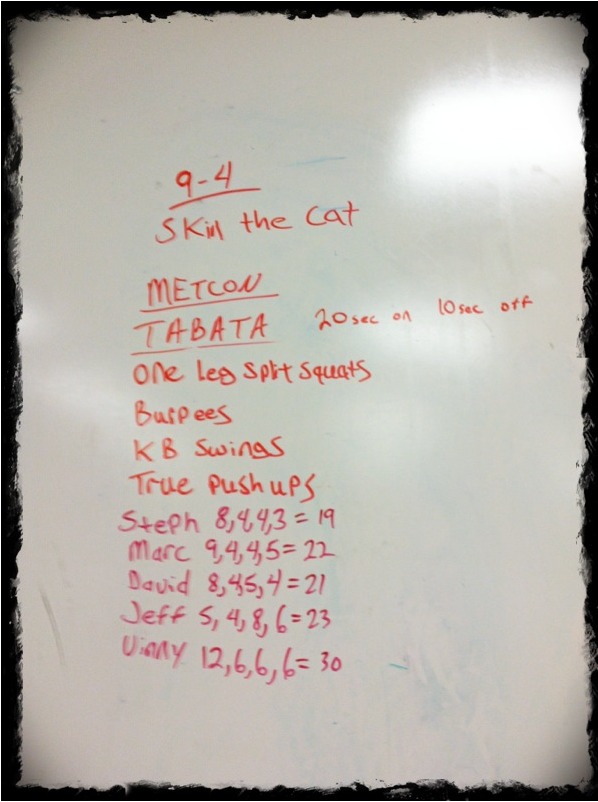 9-4
Skin the Cat
METCON
TABATA 20sec on 10sec off
One Leg Split Squats
Burpees
KB Swings
True Push ups
Steph 8,4,4,3 = 19
Marc 9,4,4,5 = 22
David 8,4,5,4 = 21
Jeff 5, 4, 8, 6 = 23
Vinny 12,6,6,6 = 30